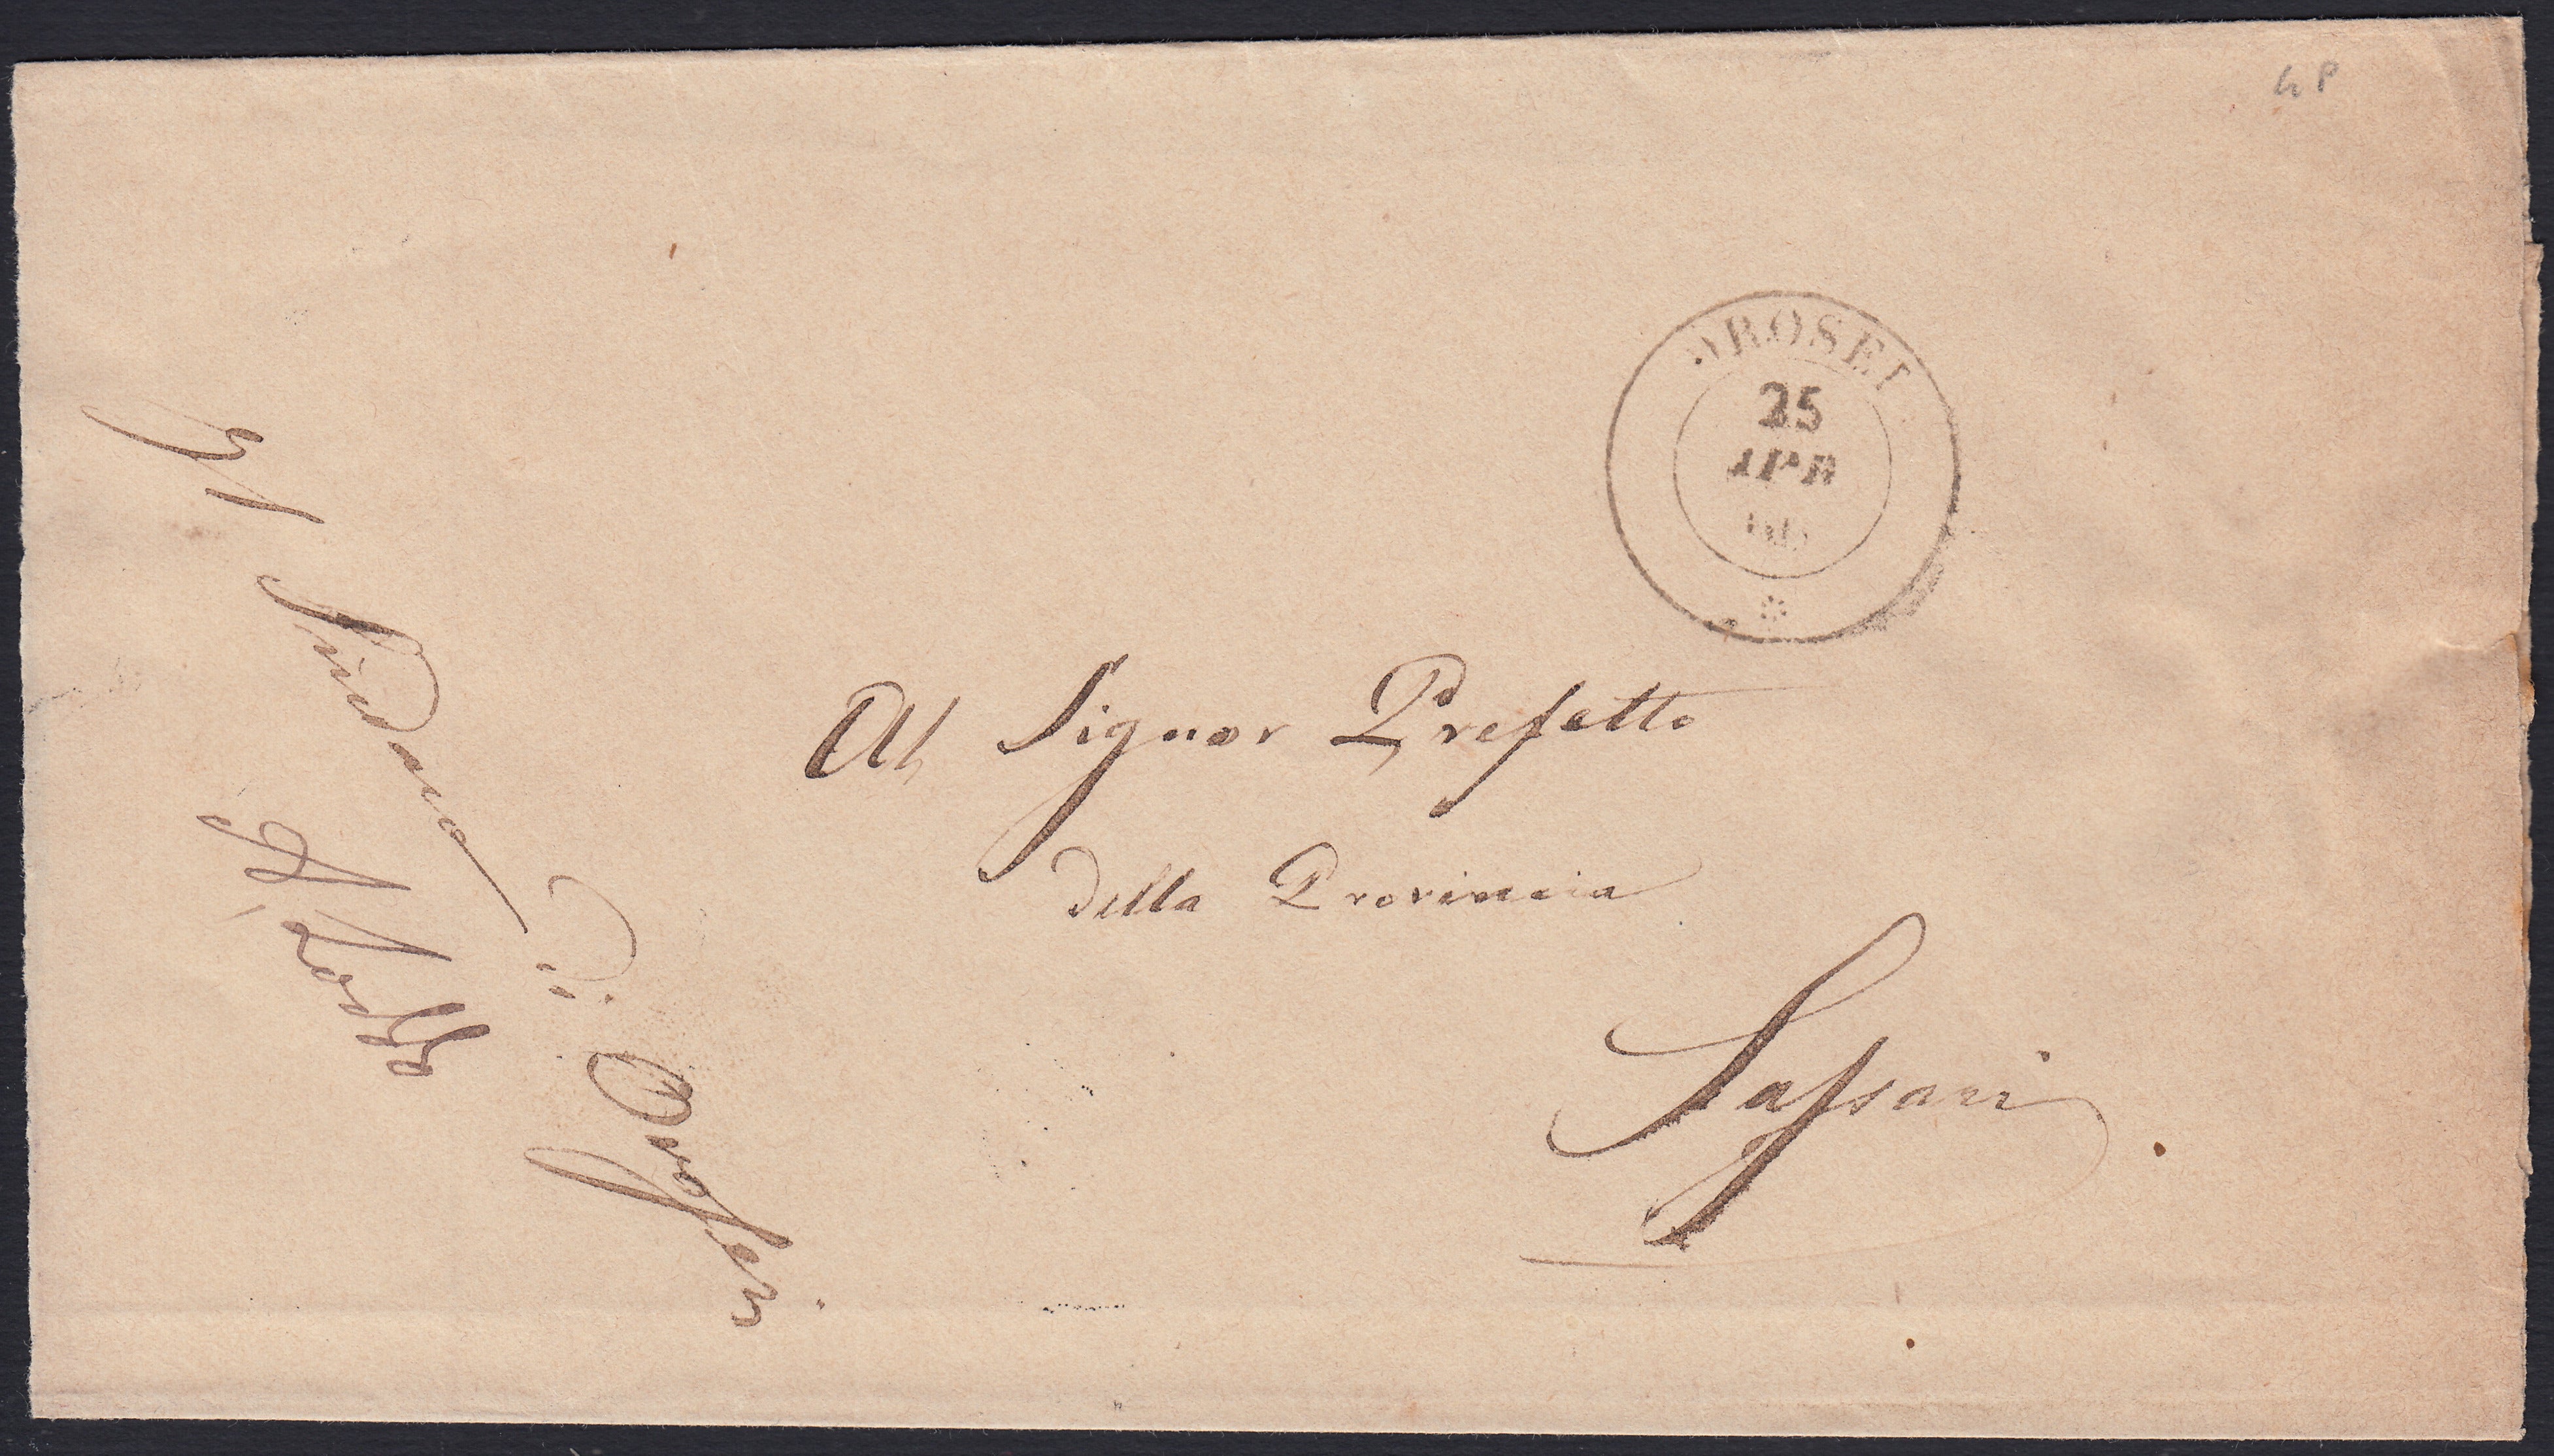 4 P
OROSEI
25
APR
Al Signor Prefetto
della Provincia
Sassari
Il Sindaco
di Orosei